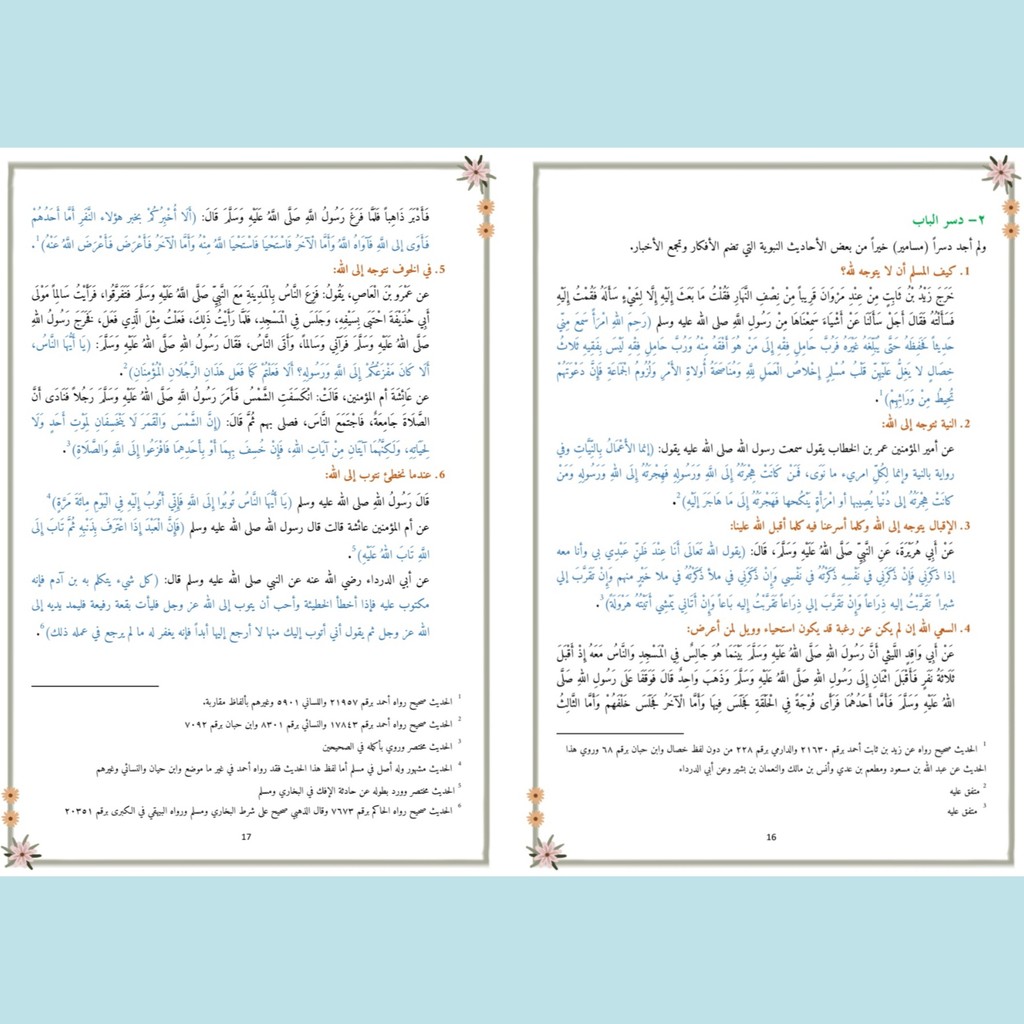 ٢- دسر الباب
ولم أجد دسراً (مسامير) خيراً من بعض الأحاديث النبوية التي تضم الأفكار وتجمع الأخبار.
1. كيف المسلم أن لا يتوجه لله؟
خَرَجَ زَيْدُ بْنُ ثَابِتٍ مِنْ عِنْدِ مَرْوَانَ قَرِيباً مِنْ نِصْفِ النَّهَارِ فَقُلْتُ مَا بَعَثَ إِلَيْهِ إِلَّا لِشَيْءٍ سَأَلَهُ فَقُمْتُ إِلَيْهِ
فَسَأَلْتُهُ فَقَالَ أَجَلْ سَأَلَنَا عَنْ أَشْيَاءَ سَمِعْنَاهَا مِنْ رَسُولِ اللهِ صلى الله عليه وسلم (رَحِمَ اللهُ امْرَأً سَمِعَ مِنِّي
حَدِيثاً فَحَفِظَهُ حَتَّى يُبَلِّغَهُ غَيْرَهُ فَرُبَّ حَامِلِ فِقْهٍ إِلَى مَنْ هُوَ أَفْقَهُ مِنْهُ وَرُبَّ حَامِلِ فِقْهٍ لَيْسَ بِفَقِيهٍ ثَلَاثُ
خِصَالٍ لَا يَغِلُّ عَلَيْهِنَّ قَلْبُ مُسْلِمٍ إِخْلَاصُ الْعَمَلِ لِلَّهِ وَمُنَاصَحَةُ أُولَاةِ الْأَمْرِ وَلُزُومُ الْجَمَاعَةِ فَإِنَّ دَعْوَتَهُمْ
تُحِيطُ مِنْ وَرَائِهِمْ)¹.
2. النية نتوجه إلى الله:
عن أمير المؤمنين عمر بن الخطاب يقول سمعت رسول الله صلى الله عليه يقول: (إنما الأَعْمَالُ بِالنِّيَّاتِ وفي
رواية بالنية وإنما لِكُلِّ امريء ما نَوَى، فَمَنْ كَانَتْ هِجْرَتُهُ إِلَى اللَّهِ وَرَسُولِهِ فَهِجْرَتُهُ إِلَى اللَّهِ وَرَسُولِهِ وَمَنْ
كانَتْ هِجْرَتُهُ إلى دُنْيَا يُصِيبها أو امْرَأةٍ يَنْكحها فَهِجْرَتُهُ إِلَى مَا هَاجَرَ إِلَيْهِ)².
3. الإقبال يتوجه إلى الله وكلما أسرعنا فيه كلما أقبل الله علينا:
عَنْ أَبِي هُرَيْرَةَ، عَنِ النَّبِيِّ صَلَّى اللهُ عَلَيْهِ وَسَلَّمَ، قَالَ: (يقول الله تَعَالَى أَنَا عِنْدَ ظَنِّ عَبْدِي بي وأنا معه
إذا ذَكَرَنِي فَإِنْ ذَكَرَنِي في نَفْسِهِ ذَكَرْتُهُ في نَفْسِي وَإِنْ ذَكَرَنِي في ملأ ذَكَرْتُهُ في ملأ خَيْرٍ منهم وَإِنْ تَقَرَّبَ إلي
شبراً تَقَرَّبْتُ إليه ذِرَاعاً وَإِنْ تَقَرَّبَ إلي ذِرَاعاً تَقَرَّبْتُ إليه بَاعاً وَإِنْ أَتَانِي يَمْشِي أَتَيْتُهُ هَرْوَلَةً)³.
4. السعي الله إن لم يكن عن رغبة قد يكون استحياء وويل لمن أعرض:
عَنْ أَبِي وَاقِدٍ اللَّيْثِي أَنَّ رَسُولَ اللهِ صَلَّى اللَّهُ عَلَيْهِ وَسَلَّمَ بَيْنَمَا هُوَ جَالِسٌ فِي الْمَسْجِدِ وَالنَّاسُ مَعَهُ إِذْ أَقْبَلَ
ثَلَاثَةُ نَفَرٍ فَأَقْبَلَ اثْنَانِ إِلَى رَسُولِ اللهِ صَلَّى اللَّهُ عَلَيْهِ وَسَلَّمَ وَذَهَبَ وَاحِدٌ قَالَ فَوَقَفَا عَلَى رَسُولِ اللهِ صَلَّى
اللَّهُ عَلَيْهِ وَسَلَّمَ فَأَمَّا أَحَدُهُمَا فَرَأَى فُرْجَةً فِي الْحَلْقَةِ فَجَلَسَ فِيهَا وَأَمَّا الْآخَرُ فَجَلَسَ خَلْفَهُمْ وَأَمَّا الثَّالِثُ
¹ الحديث صحيح رواه عن زيد بن ثابت أحمد برقم ٢١٦٣٠ والدارمي برقم ٢٢٨ من دون لفظ خصال وابن حبان برقم ٦٨ وروي هذا
الحديث عن عبد الله بن مسعود ومطعم بن عدي وأنس بن مالك والنعمان بن بشير وعن أبي الدرداء
² متفق عليه
³ متفق عليه
16
فَأَدْبَرَ ذَاهِباً فَلَمَّا فَرَغَ رَسُولُ اللهِ صَلَّى اللَّهُ عَلَيْهِ وَسَلَّمَ قَالَ: (أَلَا أُخْبِرُكُمْ بخبر هؤلاء النَّفَرِ أمَّا أَحَدُهُمْ
فَأَوَى إلى اللهِ فَآوَاهُ اللَّهُ وَأَمَّا الْآخَرُ فَاسْتَحْيَا فَاسْتَحْيَا اللَّهُ مِنْهُ وَأَمَّا الْآخَرُ فَأَعْرَضَ فَأَعْرَضَ اللَّهُ عَنْهُ)¹.
5. في الخوف نتوجه إلى الله:
عن عَمْرِو بْنَ الْعَاصِ، يَقُولُ: فَزِعَ النَّاسُ بِالْمَدِينَةِ مَعَ النَّبِيِّ صَلَّى اللهُ عَلَيْهِ وَسَلَّمَ فَتَفَرَّقُوا، فَرَأَيْتُ سَالِماً مَوْلَى
أَبِي حُذَيْفَةَ احْتَبَى بِسَيْفِهِ، وَجَلَسَ فِي الْمَسْجِدِ، فَلَمَّا رَأَيْتُ ذَلِكَ، فَعَلْتُ مِثْلَ الَّذِي فَعَلَ، فَخَرَجَ رَسُولُ اللهِ
صَلَّى اللهُ عَلَيْهِ وَسَلَّمَ فَرَآنِي وَسَالِماً، وَأَتَى النَّاسُ، فَقَالَ رَسُولُ اللهِ صَلَّى اللهُ عَلَيْهِ وَسَلَّمَ: (يَا أَيُّهَا النَّاسُ،
أَلَا كَانَ مَفْزَعُكُمْ إِلَى اللَّهِ وَرَسُولِهِ؟ أَلَا فَعَلْتُمْ كَمَا فَعَلَ هَذَانِ الرَّجُلَانِ الْمُؤْمِنَانِ)².
عن عَائِشَةَ أم المؤمنين، قَالَتْ: انْكَسَفَتِ الشَّمْسُ فَأَمَرَ رَسُولُ اللهِ صَلَّى اللهُ عَلَيْهِ وَسَلَّمَ رَجُلاً فَنَادَى أَنَّ
الصَّلَاةَ جَامِعَةٌ، فَاجْتَمَعَ النَّاسُ، فصلى بهم ثُمَّ قَالَ: (إِنَّ الشَّمْسَ وَالْقَمَرَ لَا يَنْخَسِفَانِ لِمَوْتِ أَحَدٍ وَلَا
لِحَيَاتِهِ، وَلَكِنَّهُمَا آيَتَانِ مِنْ آيَاتِ اللهِ، فَإِنْ خُسِفَ بِهِمَا أَوْ بِأَحَدِهِمَا فَافْزَعُوا إِلَى اللَّهِ وَالصَّلَاةِ)³.
6. عندما نخطئ نتوب إلى الله:
قَالَ رَسُولُ اللهِ صلى الله عليه وسلم (يَا أَيُّهَا النَّاسُ تُوبُوا إِلَى اللَّهِ فَإِنِّي أَتُوبُ إِلَيْهِ فِي الْيَوْمِ مِائَةَ مَرَّةٍ)⁴
عن أم المؤمنين عائشة قالت قال رسول الله صلى الله عليه وسلم (فَإِنَّ الْعَبْدَ إِذَا اعْتَرَفَ بِذَنْبِهِ ثُمَّ تَابَ إِلَى
اللَّهِ تَابَ اللهُ عَلَيْهِ)⁵.
عن أبي الدرداء رضي الله عنه عن النبي صلى الله عليه وسلم قال: (كل شيء يتكلم به بن آدم فإنه
مكتوب عليه فإذا أخطأ الخطيئة وأحب أن يتوب إلى الله عز وجل فليأت بقعة رفيعة فليمد يديه إلى
الله عز وجل ثم يقول أني أتوب إليك منها لا أرجع إليها أبداً فإنه يغفر له ما لم يرجع في عمله ذلك)⁶.
¹ الحديث صحيح رواه أحمد برقم ٢١٩٥٧ واللسائي ٥٩٠١ وغيرهم بألفاظ مقاربة.
² الحديث صحيح رواه أحمد برقم ١٧٨٤٣ والنسائي برقم ٨٣٠١ وابن حبان برقم ٧٠٩٢
³ الحديث مختصر وروي بأكمله في الصحيحين
⁴ الحديث مشهور وله أصل في مسلم أما لفظ هذا الحديث فقد رواه أحمد في غير ما موضع وابن حبان والنسائي وغيرهم
⁵ الحديث مختصر وورد بطوله عن حادثة الإفك في البخاري ومسلم
⁶ الحديث صحيح رواه الحاكم برقم ٧٦٧٣ وقال الذهبي صحيح على شرط البخاري ومسلم ورواه البيهقي في الكبرى برقم ٢٠٣٥١
17